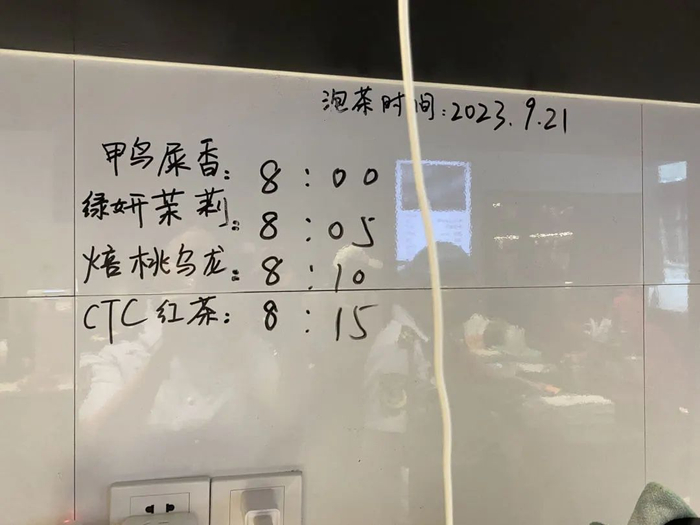 泡茶时间:2023.9.21
甲鸟屎香:8:00
绿妍茉莉:8:05
焙桃乌龙:8:10
CTC红茶:8:15